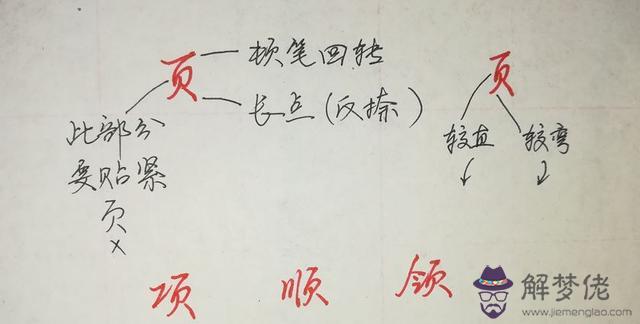 页
顿笔回转
长点(反捺)
此部分
要贴紧
页
×
页
较直
较弯
项 顺 领
解梦佬
www.jiemenglao.com